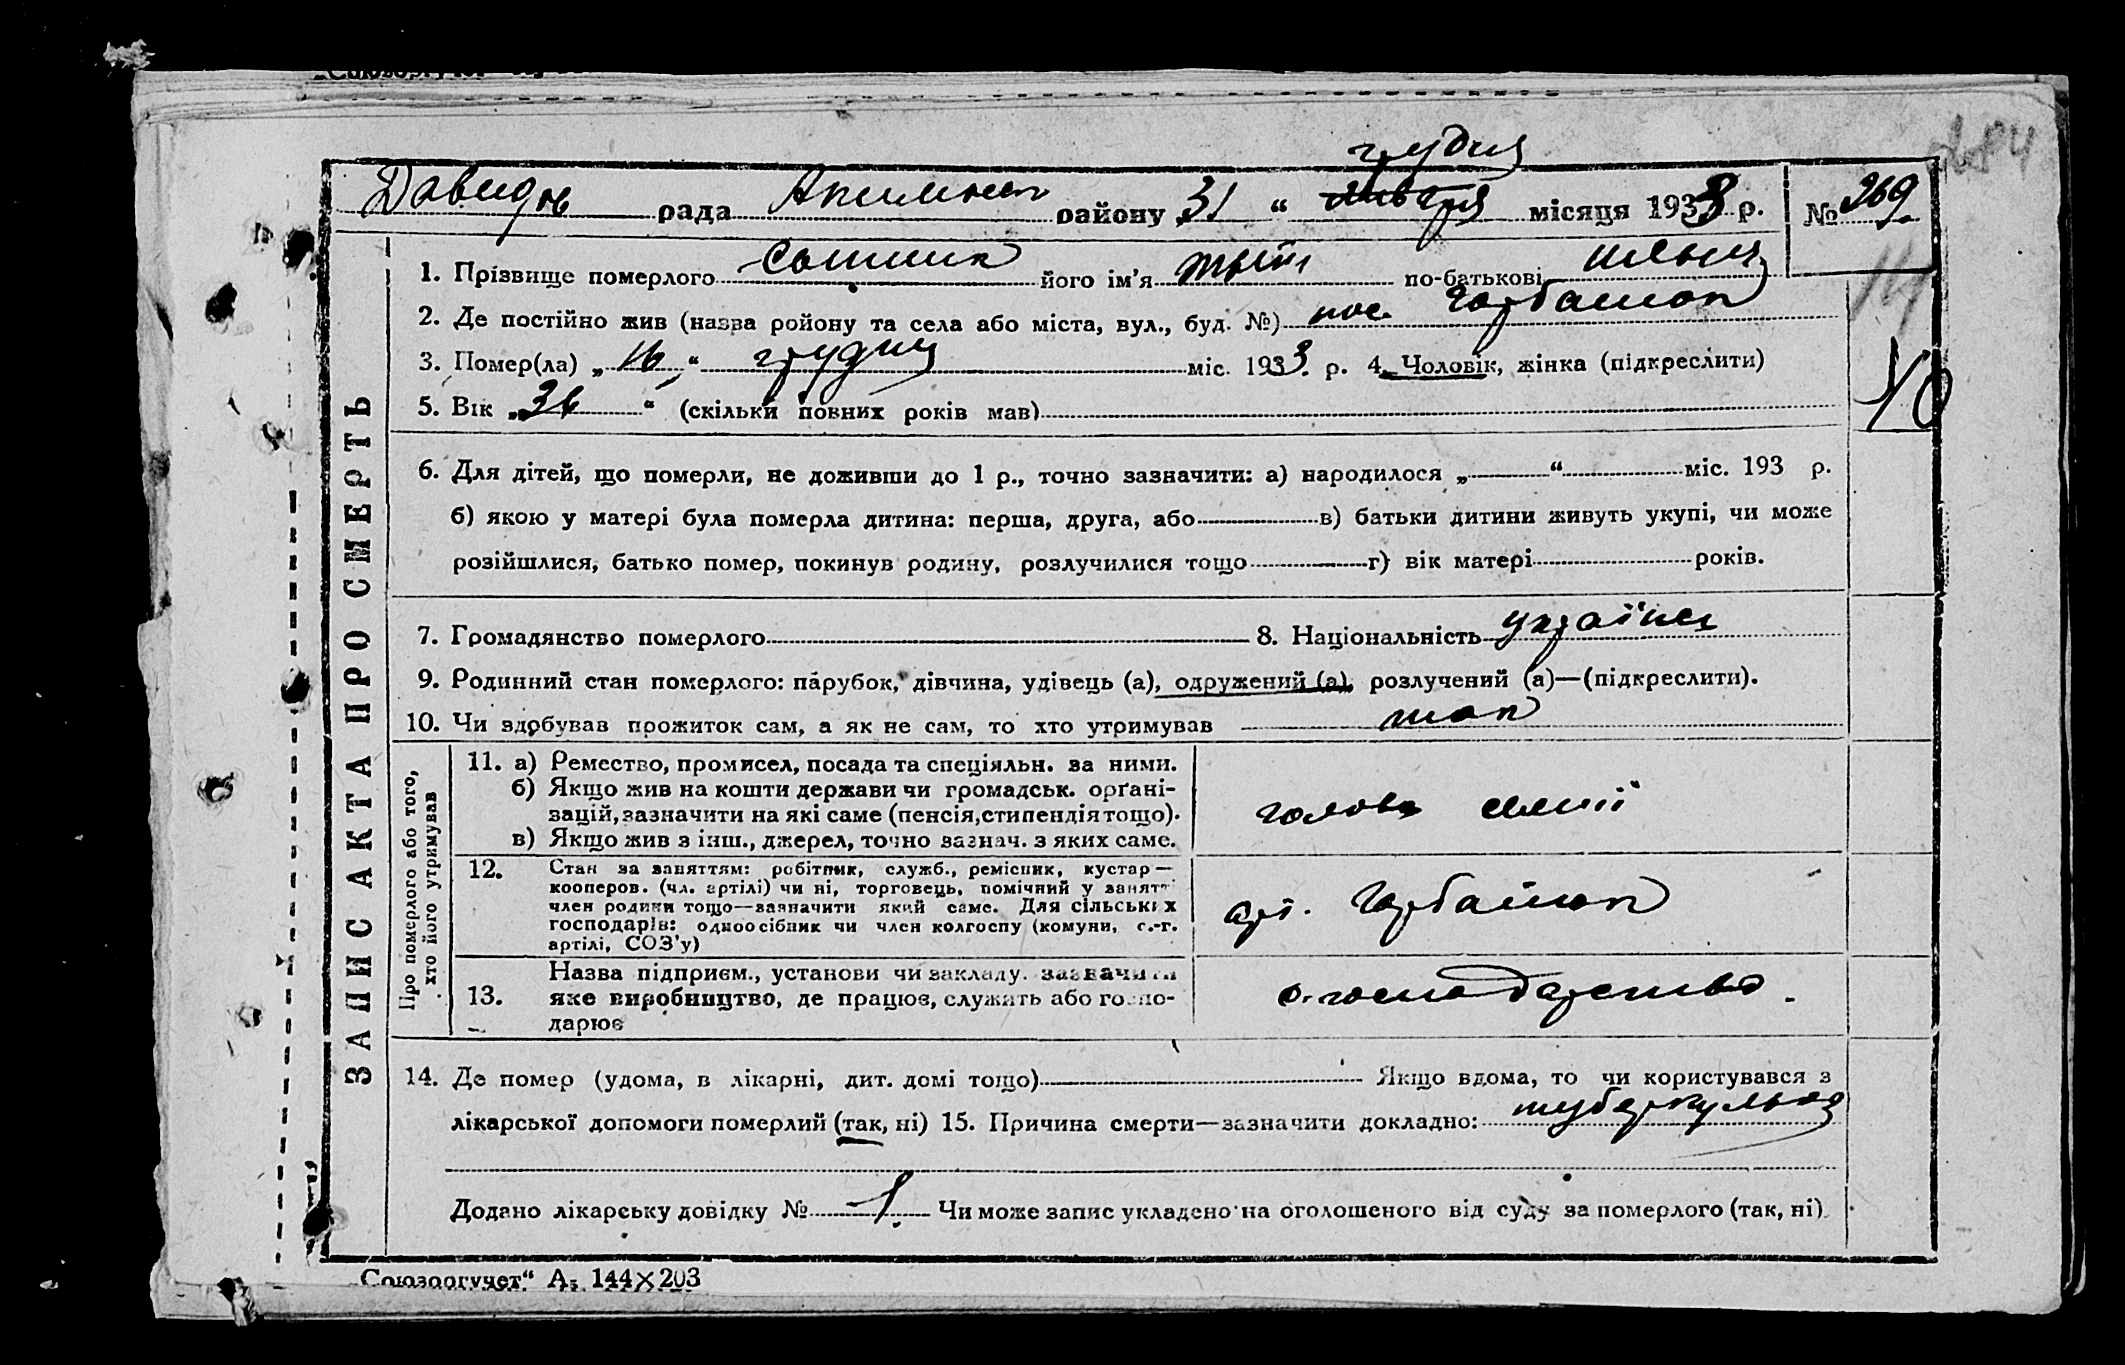 грудня
Давидов рада района 31 " января місяця 1933 р. № 269
1. Прізвище померлого його ім'я по-батькові
2. Де постійно жив (назва ройону та села або міста, вул., буд. №) пос. Горбашом
3. Помер(ла) „16" грудня міс. 1933. р. 4. Чоловік, жінка (підкреслити)
5. Вік „36" (скільки повних років мав)
6. Для дітей, що померли, не доживши до 1 р., точно зазначити: а) народилося „ " міс. 193 р.
б) якою у матері була померла дитина: перша, друга, або в) батьки дитини живуть укупі, чи може
розійшлися, батько помер, покинув родину, розлучилися тощо г) вік матері років.
7. Громадянство померлого 8. Національність українец
9. Родинний стан померлого: парубок, дівчина, удівець (а), одружений (а), розлучений (а)—(підкреслити).
10. Чи здобував прожиток сам, а як не сам, то хто утримував
ЗАПИС АКТА ПРО СМЕРТЬ
Про померлого або того,
хто його утримував
11. а) Ремество, промисел, посада та специяльн. за ними.
б) Якщо жив на кошти держави чи громадськ. орґані-
зацій, зазначити на які саме (пенсія, стипендія тощо).
в) Якщо жив з інш., джерел, точно зазнач. з яких саме.
голова семії
12. Стан за заняттям: робітник, служб., ремісник, кустар—
кооперов. (чл. артілі) чи ні, торговець, помічний у занятті
член родини тощо—зазначити який саме. Для сільських
господарів: одноосібник чи член колгоспу (комуни, с.-г.
артілі, СОЗ'у)
арт.
13. Назва підприєм., установи чи закладу. зазначити
яке виробництво, де працює, служить або госпо-
дарює
с. господарство.
14. Де помер (удома, в лікарні, дит. домі тощо) Якщо вдома, то чи користувався з
лікарської допомоги померлий (так, ні) 15. Причина смерти—зазначити докладно: туберкульоз
Додано лікарську довідку № 1. Чи може запис укладено на оголошеного від суду за померлого (так, ні)
„Союзоргучет" А5 144×203